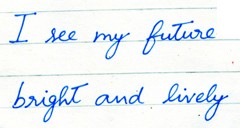 I see my future
bright and lively